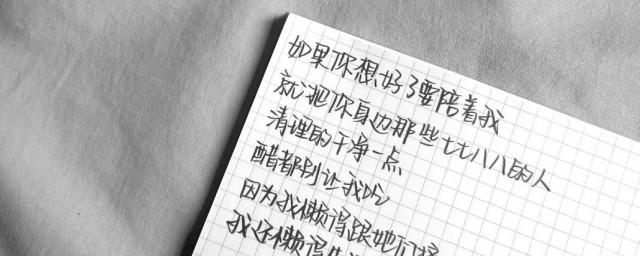 如果你想好了要陪着我
就把你身边那些七七八八的人
清理的干净一点
醋都别让我吃
因为我懒得跟她们
我还懒得